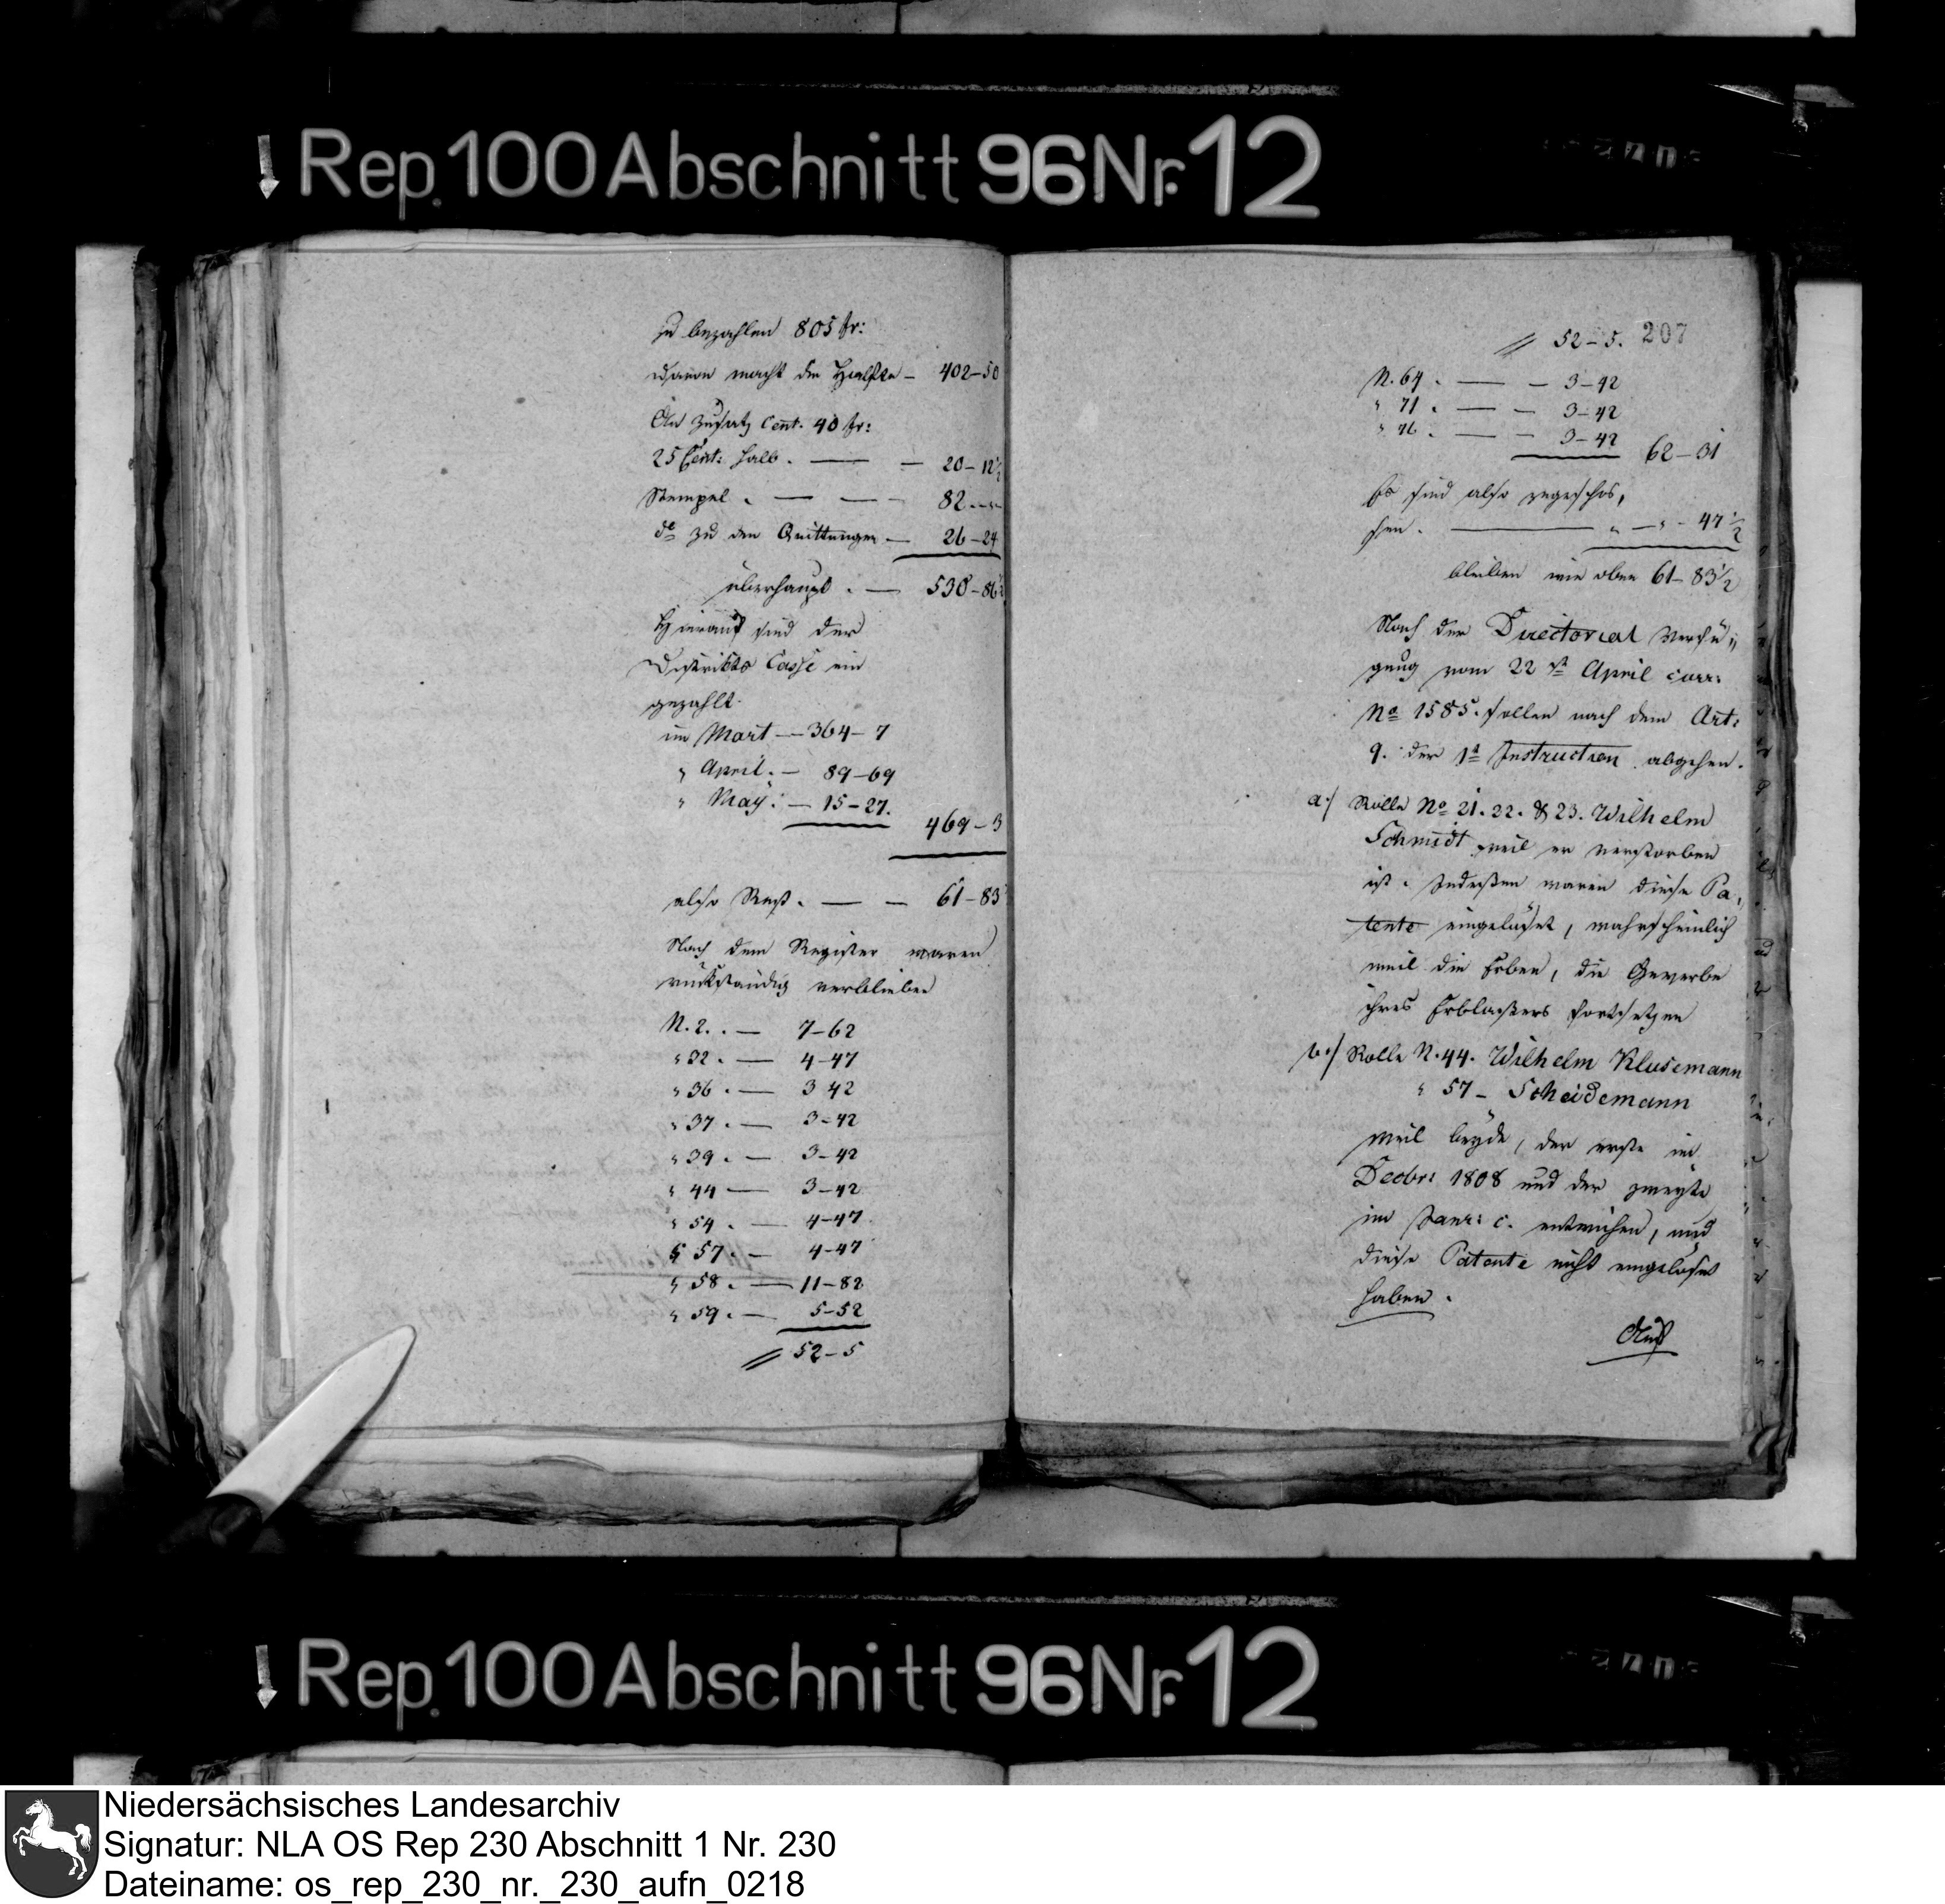 Rep. 100 Abschnitt 96 Nr. 12
zu bezahlen 805 fr:
davon macht die Hälfte — 402-50
An Zusatz Cent. 40 fr:
25 Cent: halb. — — 20-12½
Stempel. — — 82.--
do zu den Quittungen — 26-24
überhaupt. — 530-86½
Hierauf sind der
Distrikts Casse ein
gezahlt.
im Mart — 364-7
" April. — 89-69
" May: — 15-27.
469-3
also Rest. — — 61-83
Nach dem Register waren
rückständig verblieben
N. 2. . — 7-62
" 32. — 4-47
" 36. — 3 42
" 37. — 3-42
" 39. — 3-42
" 44 — 3-42
" 54. — 4-47
" 57. — 4-47
" 58. — 11-82
" 59. — 5-52
// 52-5
207
// 52-5.
N. 64. — — 3-42
" 71. — — 3-42
" 76. — — 3-42
62-31
Es sind also zugeschos,
sen. — " — " - 47½
bleiben wie oben 61-83½
Nach der Directorial Verfü,,
gung vom 22st April curr:
No 1585. sollen nach dem Art:
9. der 1t Instruction abgehen.
a./ Rolle No 21. 22. & 23. Wilhelm
Schmidt weil er verstorben
ist. Indeßen waren diese Pa,
tente eingelöset, wahrscheinlich
weil die Erben, die Gewerbe
ihres Erblaßers fortsetzen
b./ Rolle N. 44. Wilhelm Klusemann
" 57 - Scheidemann
weil beyde, der erste im
Decbr: 1808 und der zweyte
im Janr: c. entwichen, und
diese Patente nicht eingelöset
haben.
Auf
Rep. 100 Abschnitt 96 Nr. 12
Niedersächsisches Landesarchiv
Signatur: NLA OS Rep 230 Abschnitt 1 Nr. 230
Dateiname: os_rep_230_nr._230_aufn_0218